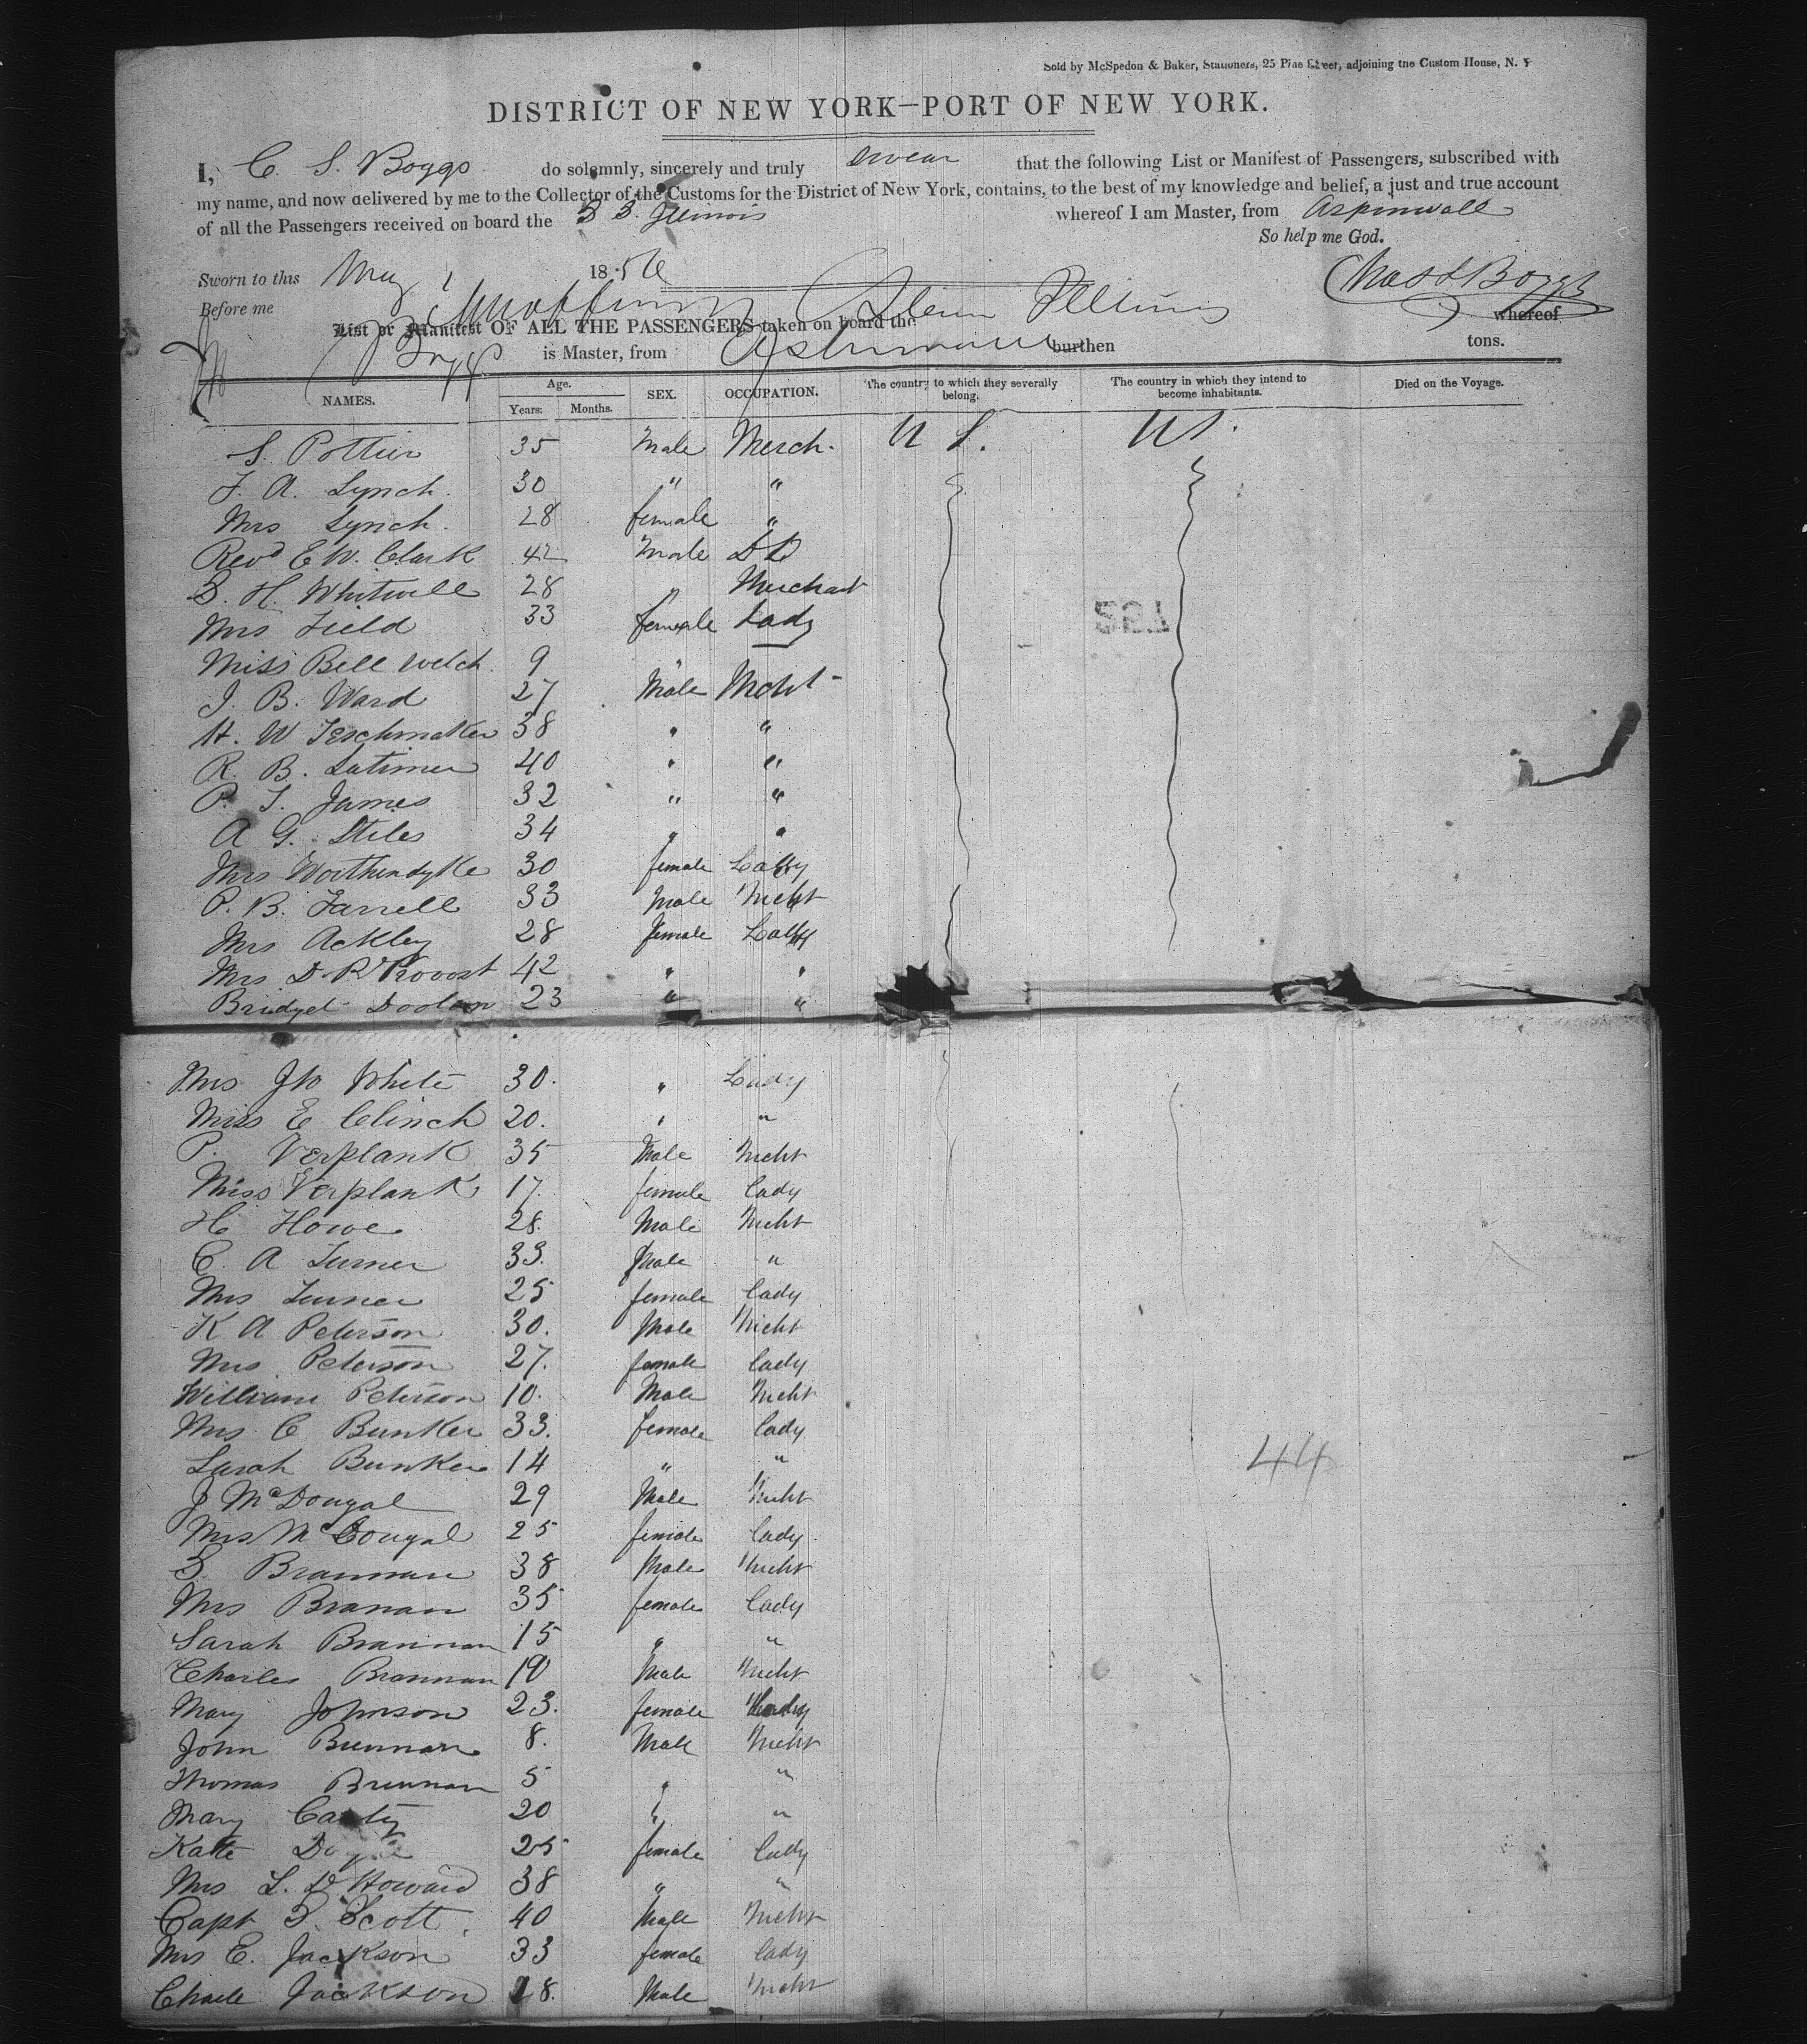 Sold by McSpedon & Baker, Stationers, 25 Pine Street, adjoining the Custom House, N. Y
DISTRICT OF NEW YORK—PORT OF NEW YORK.
I, C. S. Boggs do solemnly, sincerely and truly swear that the following List or Manifest of Passengers, subscribed with
my name, and now delivered by me to the Collector of the Customs for the District of New York, contains, to the best of my knowledge and belief, a just and true account
of all the Passengers received on board the S S. Illinois whereof I am Master, from Aspinwall
So help me God.
Sworn to this May 1856 Chas S Boggs
Before me
List or Manifest OF ALL THE PASSENGERS taken on board the Steam Illinois whereof
Boggs is Master, from Aspinwall burthen tons.
NAMES. Age. Years: Months. SEX. OCCUPATION. The country to which they severally belong. The country in which they intend to become inhabitants. Died on the Voyage.
S. Pottier 35 Male Merch. U S. U S.
F. A. Lynch. 30 " "
Mrs Lynch. 28 female "
Revd E W. Clark 42 Male DD
S. H. Whitwell 28 " Merchant
Mrs Field 33 female Lady
Miss Bell Welch. 9 "
J. B. Ward 27 Male Mcht
H. W Teschmaker 38 " "
R. B. Latimer 40 " "
P. T. James 32 " "
A G. Stiles 34 " "
Mrs Worthendyke 30 female Lady
P. B. Farrell 33 Male Mcht
Mrs Ackley 28 female Lady
Mrs D. R. Provost 42 " "
Bridget Doolan 23 " "
Mrs JW White 30. " Lady
Miss E Clinch 20. " "
P. Verplank 35 Male Mcht
Miss Verplank 17. female lady
H Howe 28. Male Mcht
C. A Turner 33. Male "
Mrs Turner 25 female lady
K A Peterson 30. Male Mcht
Mrs Peterson 27. female lady
William Peterson 10. Male Mcht
Mrs C Bunker 33. female lady
Sarah Bunker 14 " "
J McDougal 29 Male Mcht
Mrs McDougal 25 female lady
S. Brannan 38 Male Mcht
Mrs Branan 35 female lady
Sarah Brannan 15 " "
Charles Brannan 10 Male Mcht
Mary Johnson 23. female lady
John Brennan 8. Male Mcht
Thomas Brennan 5 " "
Mary Canty 20 " "
Kate Doyle 25 female lady
Mrs L. D Howard 38 " "
Capt S. Scott 40 Male Mcht
Mrs E. Jackson 33 female lady
Charle Jackson 18. Male Mcht
44